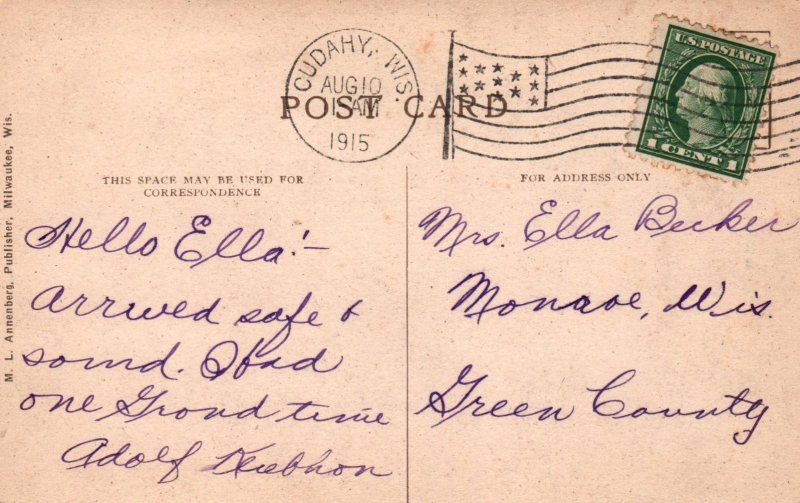 CUDAHY, WIS.
AUG 10
AM
1915
U.S. POSTAGE
1 CENT 1
POST CARD
THIS SPACE MAY BE USED FOR
CORRESPONDENCE
FOR ADDRESS ONLY
M. L. Annenberg, Publisher, Milwaukee, Wis.
Hello Ella!–
Arrived safe &
sound. I had
one Grand time
Adolf
Mrs. Ella Becker
Monroe, Wis.
Green County